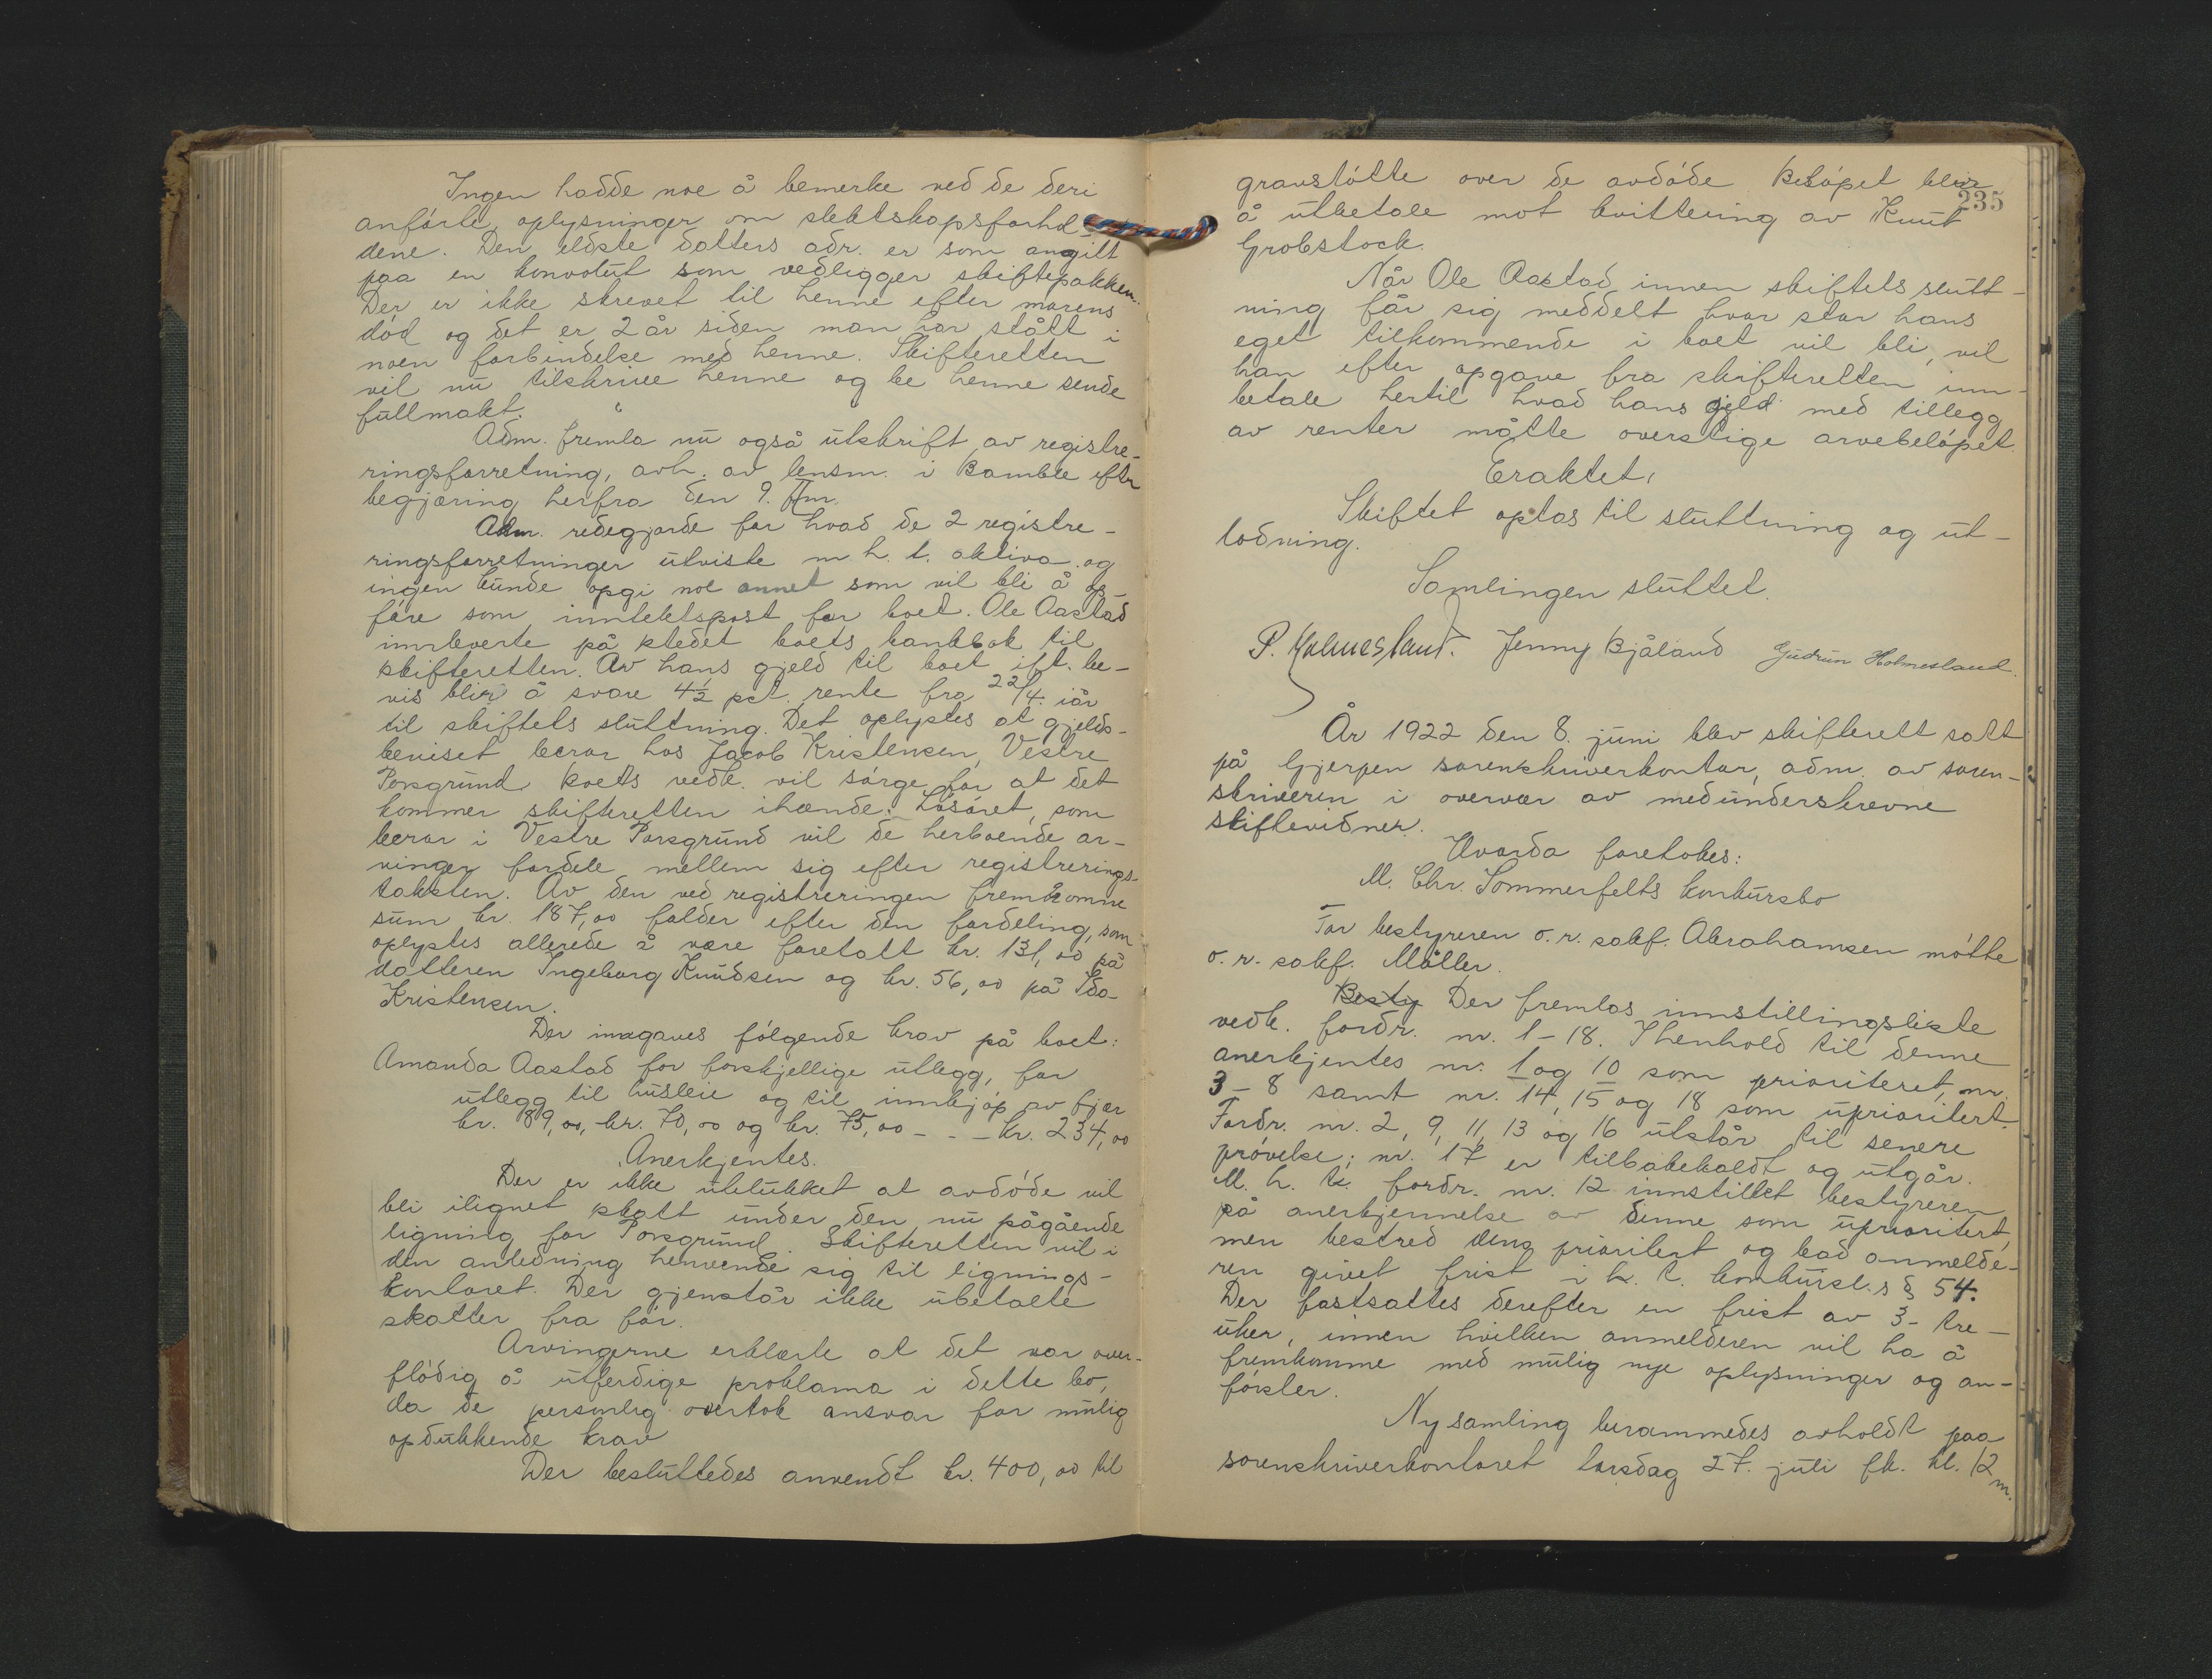 Ingen hadde noe å bemerke ved de deri
anførte oplysninger om slektskapsforhol-
dene. Den eldste datters adr. er som angitt
paa en konvolut som vedligger skiftepakken.
Der er ikke skrevet til henne efter morens
død og det er 2 år siden man har stått i
noen forbindelse med henne. Skifteretten
vil nu tilskrive henne og be henne sende
fullmakt.
Adm. fremla nu også utskrift av registre-
ringsforretning, avh. av lensm. i Bamble efter
begjæring herfra den 9. f.m.
Adm. redegjorde for hvad de 2 registre-
ringsforretninger utviste m.h.t. aktiva og
ingen kunde opgi noe annet som vil bli å op-
føre som inntektspost for boet. Ole Aastad
innleverte på stedet boets bankbok til
skifteretten. Av hans gjeld til boet ift. be-
vis blir å svare 4½ pct. rente fra 22/4. iår
til skiftets sluttning. Det oplystes at gjelds-
beviset beror hos Jacob Kristensen, Vestre
Porsgrund. Boets vedk. vil sørge for at det
kommer skifteretten ihænde. Løsøret, som
beror i Vestre Porsgrund vil de herboende ar-
vinger fordele mellem sig efter registrerings-
taksten. Av den ved registreringen fremkomne
sum kr. 187,00 falder efter den fordeling, som
oplystes allerede å være foretatt kr. 131,00 på
datteren Ingeborg Knudsen og kr. 56,00 på Ida
Kristensen.
Der inngaves følgende krav på boet:
Amanda Aastad for forskjellige utlegg, for
utlegg til husleie og til innkjøp av fjær
kr. 89,00, kr. 70,00 og kr. 75,00 - - - kr. 234,00
Anerkjentes.
Der er ikke utelukket at avdøde vil
bli ilignet skatt under den nu pågående
ligning for Porsgrund. Skifteretten vil i
den anledning henvende sig til lignings-
kontoret. Der gjenstår ikke ubetalte
skatter fra før.
Arvingerne erklærte at det var over-
flødig å utferdige proklama i dette bo,
da de personlig overtok ansvar for mulig
opdukkende krav
Der besluttedes anvendt kr. 400,00 til
235
gravstøtte over de avdøde Beløpet blir
å utbetale mot kvittering av Knut
Grobstock.
Når Ole Aastad innen skiftets slutt-
ning får sig meddelt hvor stor hans
eget tilkommende i boet vil bli, vil
han efter opgave fra skifteretten inn-
betale hertil hvad hans gjeld med tillegg
av renter måtte overstige arvebeløpet.
Eraktet,
Skiftet optas til sluttning og ut-
lodning.
Samlingen sluttet.
P. Holmesland. Jenny Bjåland Gudrun Holmesland.
År 1922 den 8. juni blev skifterett satt
på Gjerpen sorenskriverkontor, adm. av soren-
skriveren i overvær av medunderskrevne
skiftevidner.
Hvorda foretokes:
M. Chr. Sommerfelts konkursbo
For bestyreren o.r. sakf. Abrahamsen møtte
o.r. sakf. Møller.
Besty Der fremlas innstillingsliste
vedk. fordr. nr. 1-18. I henhold til denne
anerkjentes nr. 1 og 10 som prioriteret, nr.
3-8 samt nr. 14, 15 og 18 som uprioritert.
Fordr. nr. 2, 9, 11, 13 og 16 utstår til senere
prøvelse; nr. 17 er tilbakekaldt og utgår.
M. h. t. fordr. nr. 12 innstillet bestyreren
på anerkjennelse av denne som uprioritert,
men bestred dens prioritert og bad anmelde-
ren givet frist i h. t. konkursl.s § 54.
Der fastsattes derefter en frist av 3- tre-
uker, innen hvilken anmelderen vil ha å
fremkomme med mulig nye oplysninger og an-
førsler.
Ny samling berammedes avholdt paa
sorenskriverkontoret torsdag 27. juli fk. kl. 12 m.